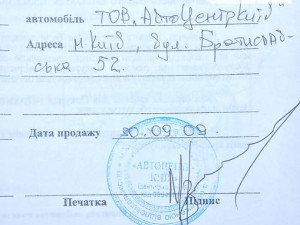 автомобіль ТОВ. АвтоЦентрКиїв"
Адреса м. Київ, вул. Братислав-
ська 52.
Дата продажу 20.09 09.
АВТОЦЕНТР
КИЇВ
Печатка Підпис